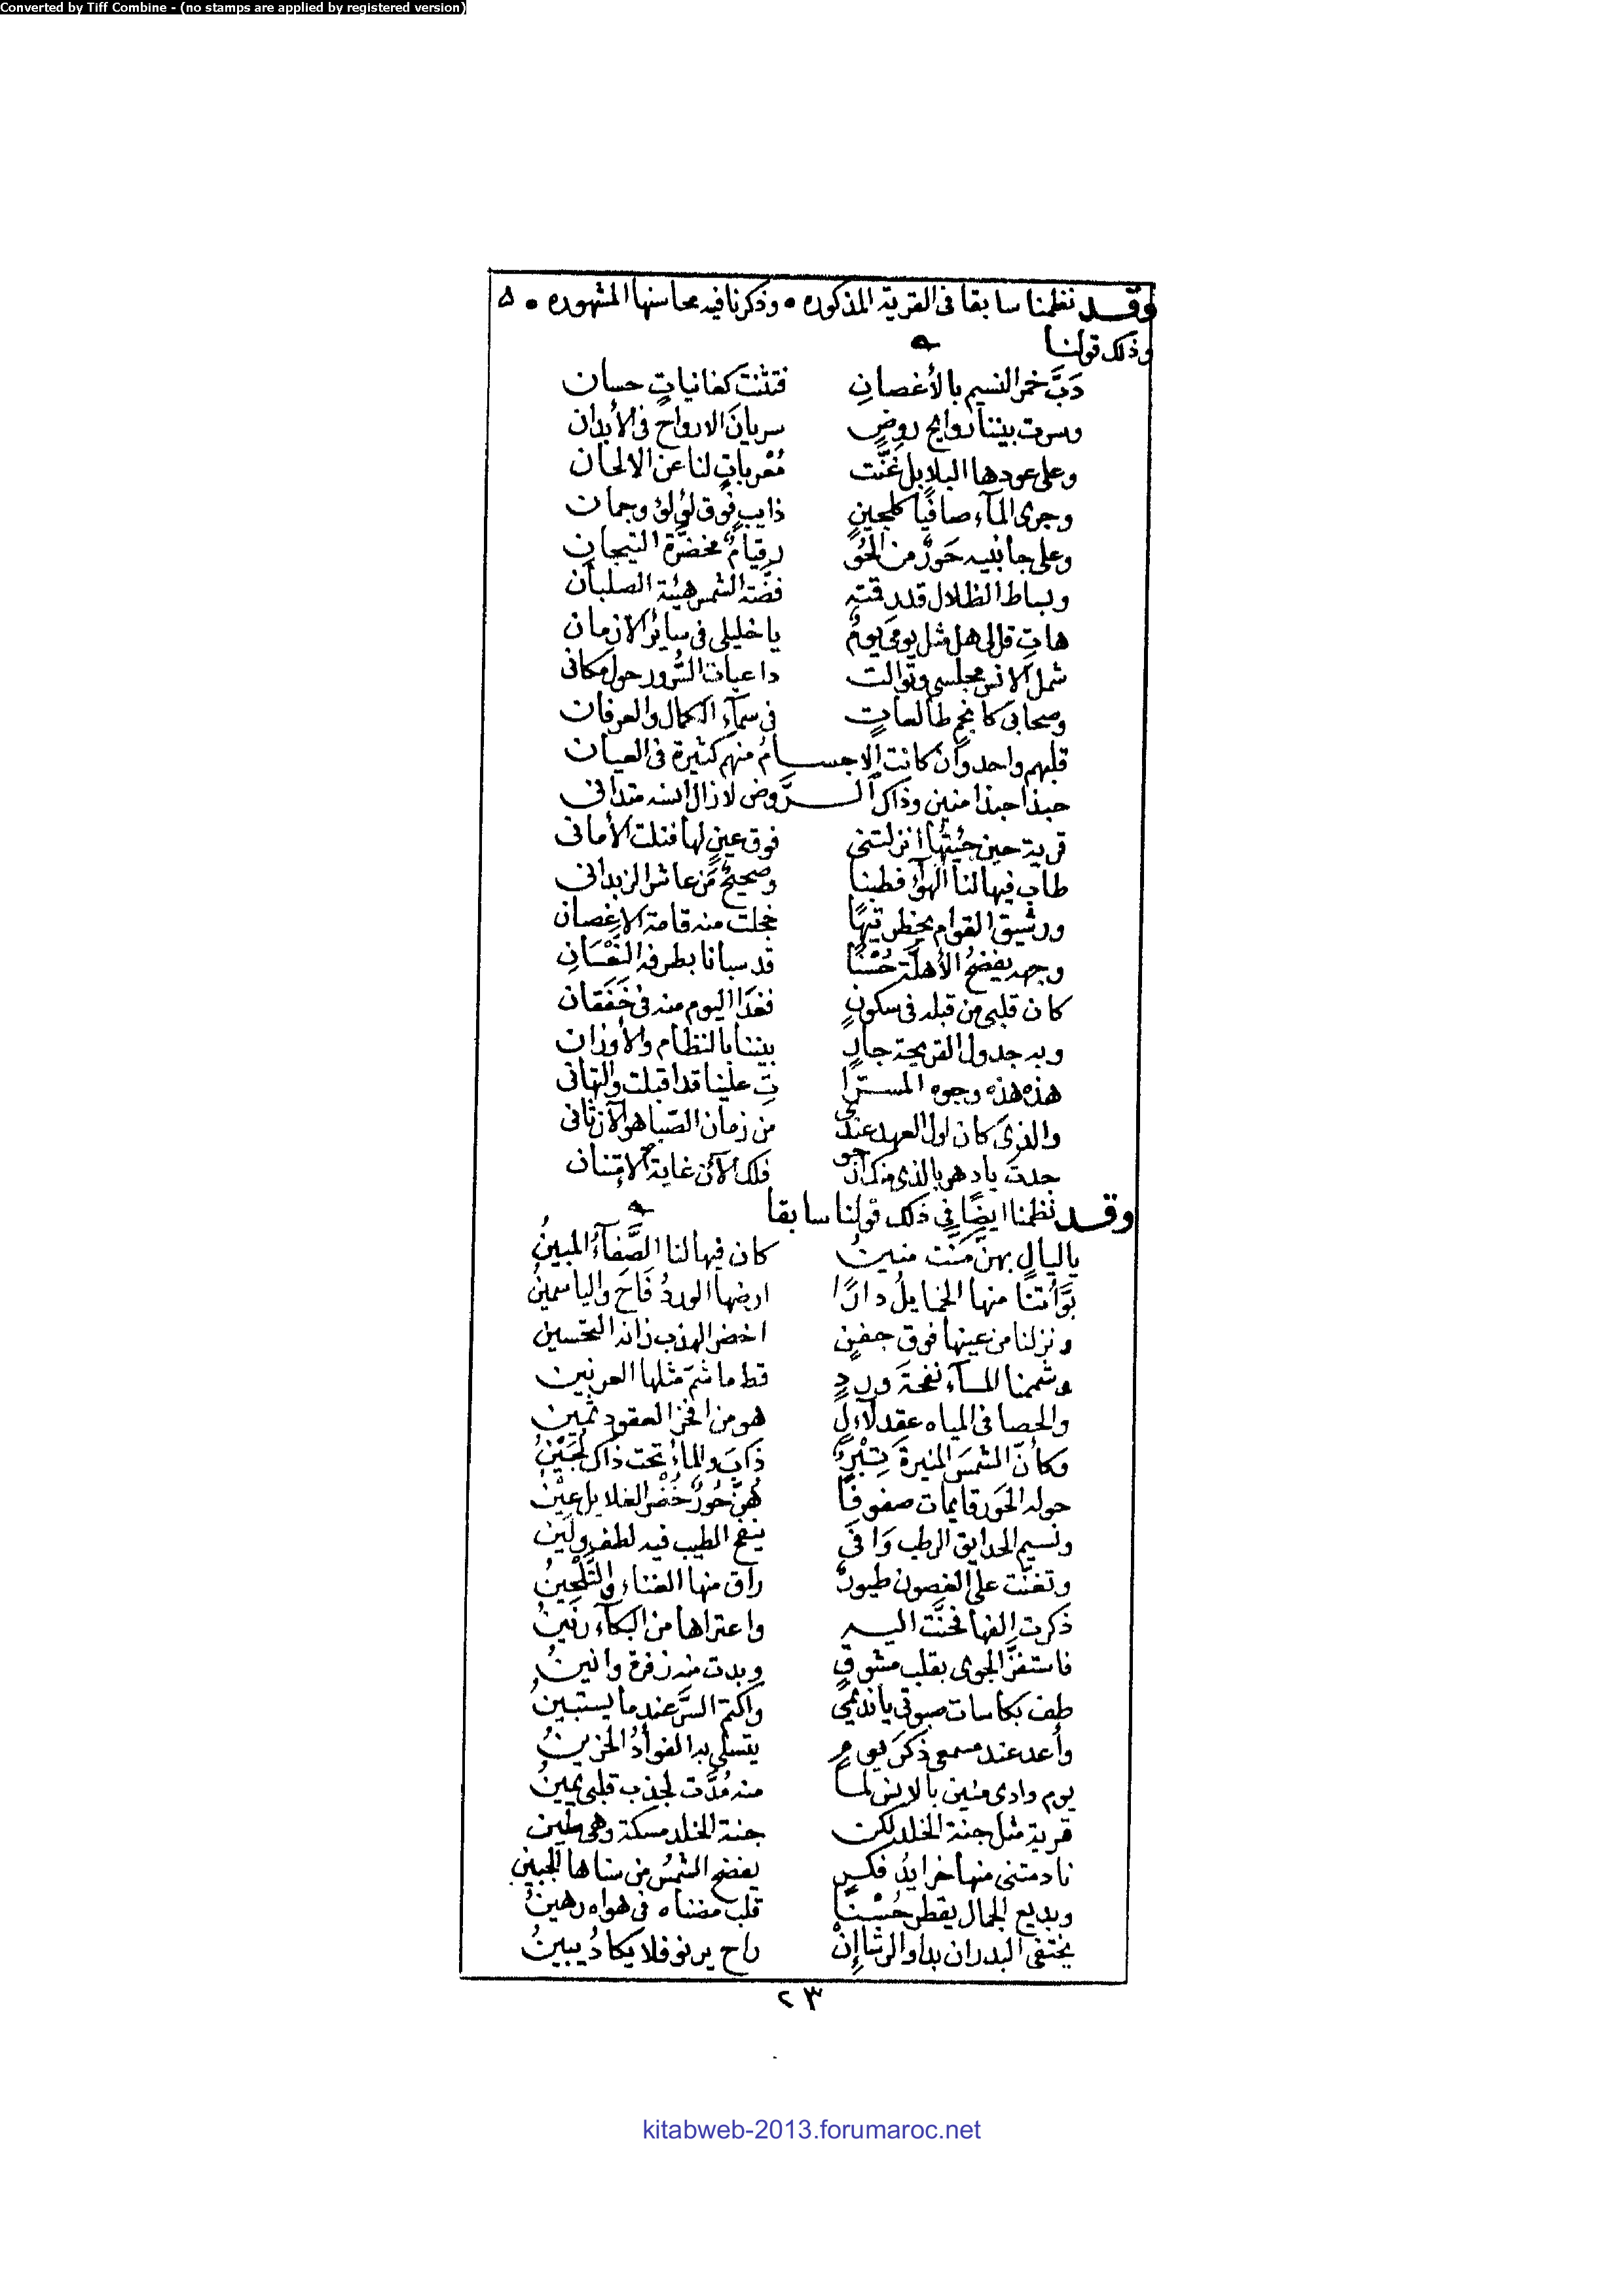 Converted by Tiff Combine - (no stamps are applied by registered version)
وقد نظمنا سابقا فى القرية المذكوره • وذكرنا فيه محاسنها المشهوره • ٥
وذلك قولنا
دَبَّ خمر النسيم بالأغصانِ فتثنت كغانياتٍ حسان
وسرت بيننا روايح روضٍ سريانَ الارواح فى الأبدان
وعلى عودها البلابل غنَّت مُعْرباتٍ لنا عن الالحان
وجرى المآء صافيًا كلجينٍ ذايبٍ فوق لؤلؤ وجمان
وعلى جانبيه حَورٌ من الحُو رِ قيامٌ مخضرَّة التيجانِ
وبساط الظلال قد رقمته فضّة الشمس هيئة الصلبان
هاتِ قل لى هل مثل يومىَ يومٌ يا خليلى فى سائر الازمان
شمل الانس مجلسى وتوالت داعيات السُّرور حول مكانى
وصحابى كانجمٍ طالعاتٍ فى سمآء الكمال والعرفان
قلبهم واحد وان كانت الاجسامُ منهم كثيرة فى العيان
حبذا حبذا منين وذاك الرَّوض لا زال انسه متدانى
قرية حين جئتُها انزلتنى فوق عينٍ لها فنلت الأمانى
طاب فيها لنا الهوآء فطبنا وصحيحٌ مَن عاشر الزبدانى
ورشيق القوام يخطر تيهًا خجلت منه قامة الاغصان
وجهه يفضحُ الأهلّة حُسْنًا قد سبانا بطرفه النَّعْسَانِ
كان قلبى من قبله فى سكونٍ فغدَا اليوم منه فى خَفَقان
وبه جدول القريحة جارٍ بيننا بالنظام والأوزان
هذه هذه وجوه المسرّا تِ علينا قد اقبلت والتهانى
والذى كان اول العهد عندى من زمان الصّبا هو الآن ثانى
جدتَ يا دهر بالذى منك ارجو فلك الآن غاية الامتنان
وقد نظمنا ايضًا فى ذلك قولنا سابقا
يا ليالٍ بهنّ مَنَّت منينُ كان فيها لنا الصَّفآءُ المبينُ
بوَّأتنا منها الخمايلُ دارًا ارضها الوردُ فَاحَ والياسمينُ
ونزلنا من عينها فوق جفنٍ اخضر الهدب زانه التحسينُ
وشممنا للمآء نفحَة وردٍ قط ما شمّ مثلها العرنين
والحصا فى المياه عقد لآلٍ هو من افخر العقود ثمين
وكأنّ الشمسَ المنيرةَ تِبْرٌ ذابَ والمآء تحت ذاك لُجَيْنُ
حوله الحَور قايمات صفوفًا هُنَّ حُورٌ خُضْر الغلايل عِيْنُ
ونسيم الحدايق الرطب وَافَى ينفح الطيب فيه لطف ولين
وتغنّت على الغصون طيورٌ راق منها الغناء والتَّلْحِينُ
ذكرت إلفها فحنَّت اليه واعتراها من البكآء رنينُ
فاستفزَّ الجوى بقلب مشوقٍ وبدت منه زفرة وانينُ
طف بكاسات صبوتى يا نديمى واكتم السرَّ عندما يستبينُ
وأعد عند مسمعى ذكرَ يومٍ يتسلى به الفؤادُ الحزينُ
يوم وادى منين بالانس لما منه مُدَّت لجذب قلبى يمينُ
قرية مثل جنة الخلد لكن جنة الخلد مسكة وهى طين
نادمتنى منها خرايدُ فكرٍ يفضح الشمسُ من سناها الجبين
وبديع الجمال يقطر حُسْنًا قلب مضناه فى هواه رهينُ
يختفى البدر ان بدا والرشا إنْ راح يرنو فلا يكادُ يبينُ
٢٣
kitabweb-2013.forumaroc.net